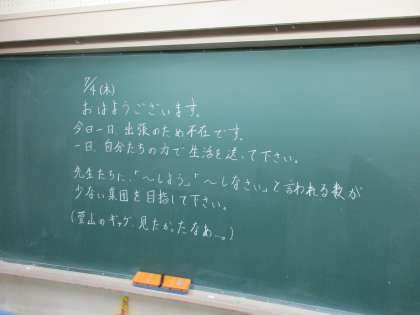 7/4(木)
おはようございます。
今日一日、出張のため不在です。
一日、自分たちの力で生活を送って下さい。
先生たちに、「〜しよう。」「〜しなさい。」と言われる数が
少ない集団を目指して下さい。
(萱山のギャグ、見たかったなあ…。)